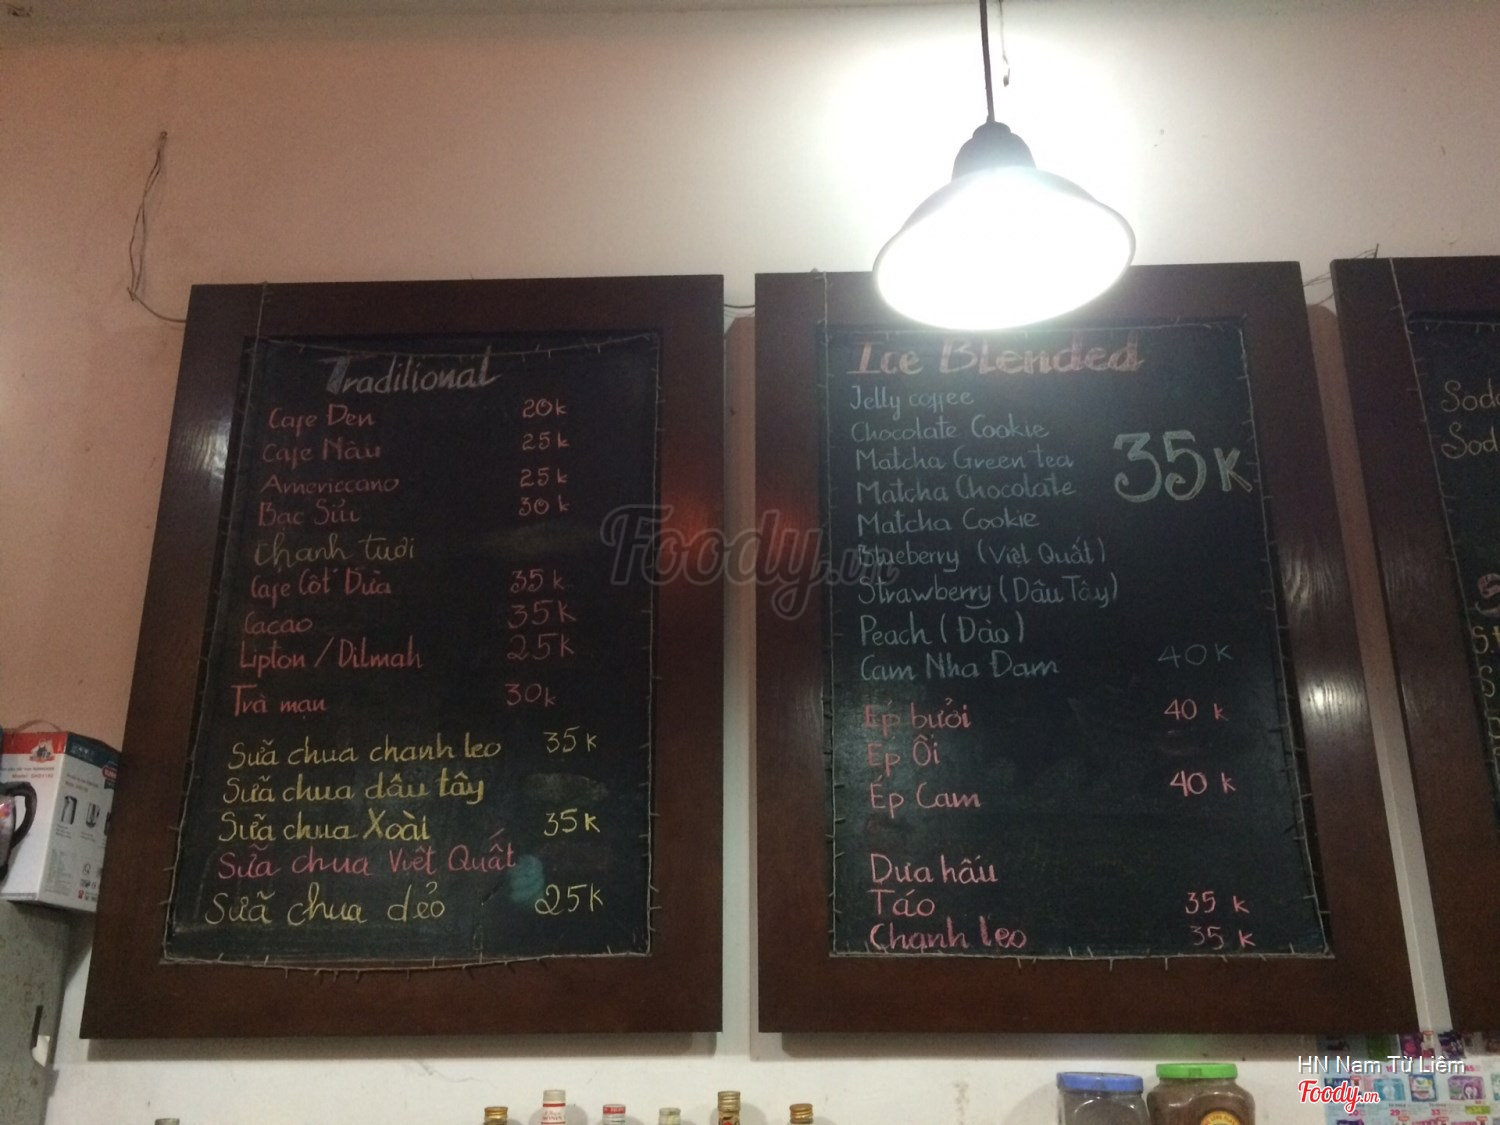 Traditional
Cafe Đen 20k
Cafe Nâu 25k
Americcano 25k
Bạc Sửu 30k
Chanh tươi
Cafe Cốt Dừa 35k
Cacao 35K
Lipton / Dilmah 25K
Trà mạn 30k
Sữa chua chanh leo 35K
Sữa chua dâu tây
Sữa chua Xoài 35K
Sữa chua Việt Quất
Sữa chua dẻo 25K
Ice Blended
Jelly coffee
Chocolate Cookie
Matcha Green tea 35K
Matcha Chocolate
Matcha Cookie
Blueberry (Việt Quất)
Strawberry (Dâu Tây)
Peach (Đào)
Cam Nha Đam 40K
Ép bưởi 40 K
Ép Ổi
Ép Cam 40 K
Dưa hấu
Táo 35 K
Chanh leo 35 K
Foody.vn
HN Nam Từ Liêm
Foody.vn